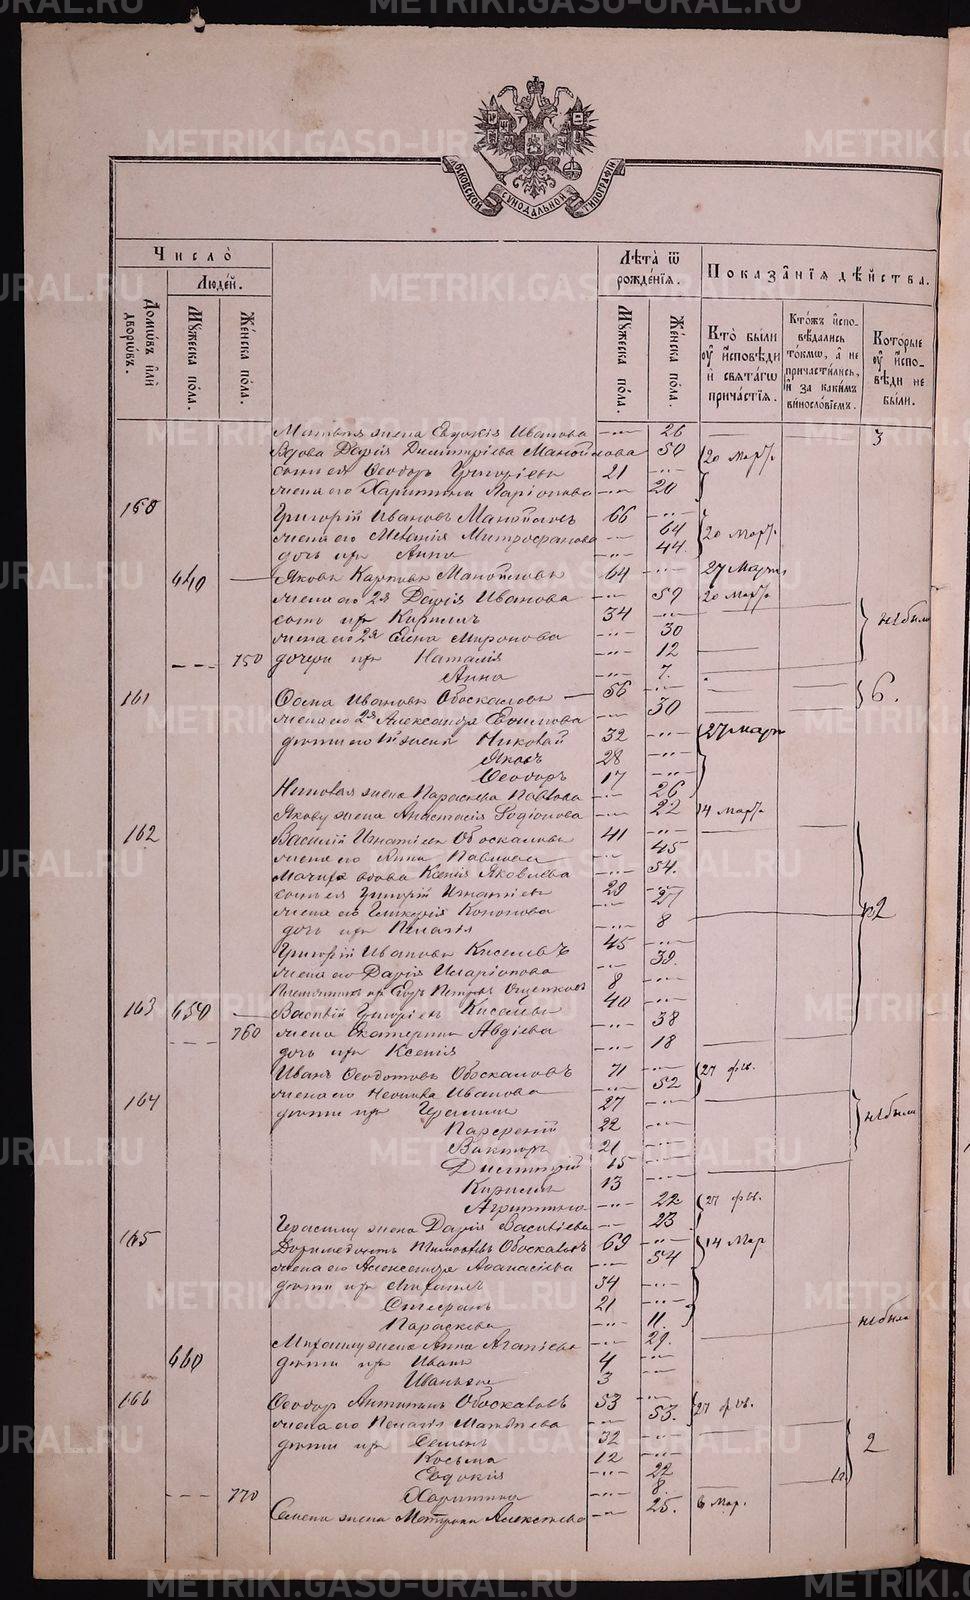 МОСКОВСКОЙ СѴНОДАЛЬНОЙ ТИПОГРАФІИ
Число̀
Людей.
Домѡвъ илѝ дворѡвъ.
Мꙋжеска по́ла.
Же́нска по́ла.
Лѣта̀ ѿ рожде́нїѧ.
Мꙋжеска по́ла.
Же́нска по́ла.
Показа̑нїѧ дѣ́йства.
Кто̀ были ᲂу҆ и҆́сповѣди и҆ свѧта́гѡ причастїѧ.
Кто́жъ и҆спо-вѣдались то́кмѡ, а҆ не причасти́лись, и҆ за каки́мъ винослові́емъ.
Которые ᲂу҆ и҆́спо-вѣди не были.
Матвѣя жена Евдокія Иванова —··— 26 — 3
Вдова Дарія Димитріева Манойлова 50 20 мар.
сынъ ея Ѳеодоръ Григорьевъ 21 —··—
жена его Харитина Ларіонова —··— 20
160 Григорій Ивановъ Манойловъ 66 —··—
жена его Меѳанія Митрофанова —··— 64 20 мар.
дочь ихъ Анна 44
640 — Яковъ Карповъ Манойловъ 64 —··— 27 Марта
жена его 2я Дарія Иванова —··— 59 20 мар.
сынъ ихъ Кириллъ 34 —··— не были
жена его 2я Елена Миронова —··— 30
750 дочери ихъ Наталія —··— 12
Анна —··— 7.
161 Ѳома Ивановъ Обоскаловъ — 56 —··— 6.
жена его 2я Александра Евѳимова —··— 30
дѣти его 1й жены Николай 32 —··— 27 март
Яковъ 28 —··—
Ѳеодоръ 17 —··—
Николая жена Параскева Павлова —··— 26
Якову жена Анастасія Родіонова —··— 22 14 мар.
162 Василій Игнатіевъ Обоскаловъ 41 —··—
жена его Анна Павлова —··— 45
Мачиха вдова Ксенія Яковлева —··— 54.
сынъ ея Григорій Игнатіевъ 29 —··—
жена его Гликерія Кононова —··— 27
дочь ихъ Пелагія —··— 8 12
Григорій Ивановъ Киселевъ 45 —··—
жена его Дарія Иларіонова —··— 39.
Племянникъ ихъ Егоръ Петровъ 8 —··—
163 650 — Василій Григоріевъ Киселевъ 40 —··—
760 жена Екатерина Авдіева —··— 38
дочь ихъ Ксенія —··— 18
Иванъ Ѳеодотовъ Обоскаловъ 71 —··— 27 фев.
жена его Неонила Иванова —··— 52
164 дѣти ихъ Герасимъ 27 —··—
Парѳеній 22 —··— не были
Викторъ 21 —··—
Дмитрій 15 —··—
Кириллъ 13 —··—
Агриппина —··— 22 27 фев.
Герасиму жена Дарія Васильева —··— 23
165 Доримедонтъ Обоскаловъ 69 —··— 14 Мар
жена его Александра Аѳанасіева —··— 54
дѣти ихъ Михаилъ 34 —··—
Стефанъ 21 —··—
Параскева —··— 11.
Михаилу жена Анна Агапіева —··— 29. не были
660 дѣти ихъ Иванъ 4 —··—
3 —··—
166 Ѳеодоръ Антиповъ Обоскаловъ 53 —··— 27 фев.
жена его Пелагія Матвѣева —··— 53.
дѣти ихъ Семенъ 32 —··— 2
Косьма 12 —··—
Евдокія —··— 22
770 Харитина —··— 8.
Семена жена Матрона Алексѣева —··— 25. 6 Мар.
METRIKI.GASO-URAL.RU